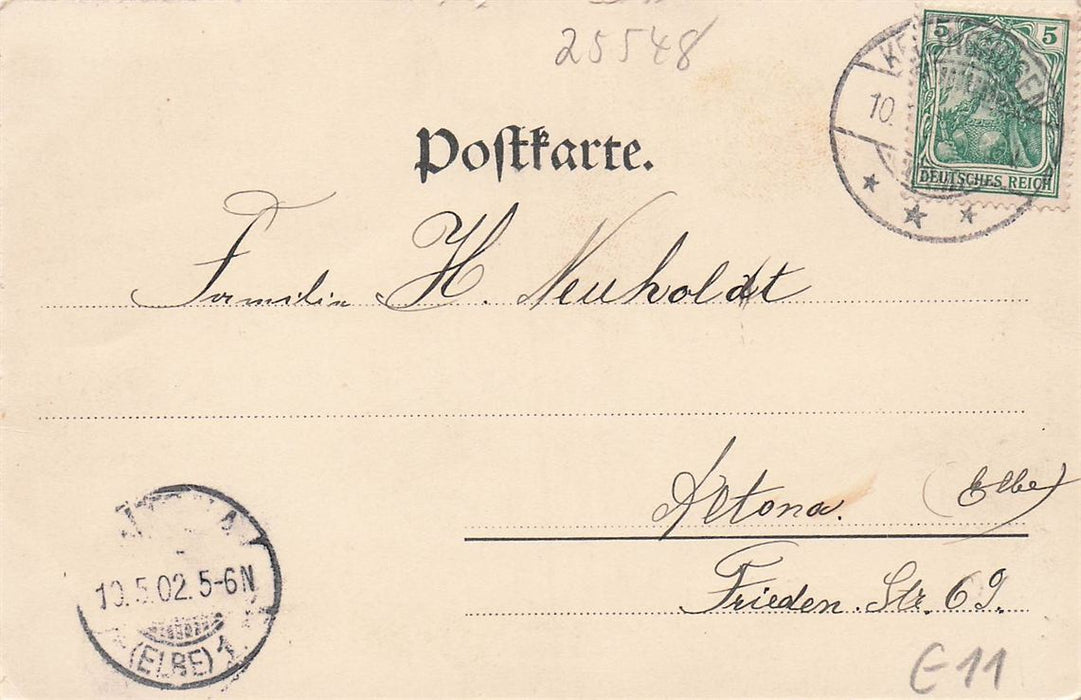 25548
5 5
10.
DEUTSCHES REICH
Postkarte.
Familie H. Neuholdt
Altona. (Elbe)
Frieden. Str. 69.
10.5.02.5-6N
(ELBE) 1.
€11